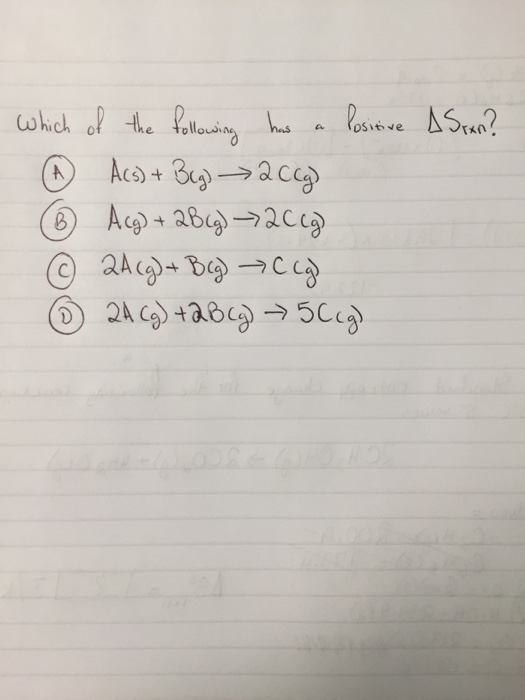 Which of the following has a Positive ΔSrxn?
A A(s) + B(g) → 2C(g)
B A(g) + 2B(g) → 2C(g)
C 2A(g) + B(g) → C(g)
D 2A(g) + 2B(g) → 5C(g)